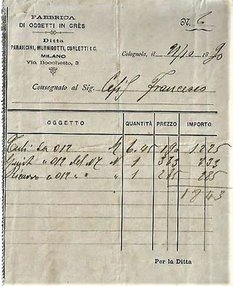 FABBRICA
DI OGGETTI IN GRÈS
Ditta
PARANCINI, MURNIGOTTI, CURLETTI & C.
MILANO
Via Bocchetto, 3
N. 6
Colognola, il 21/10 1890
Consegnato al Sig. Francesco
OGGETTO QUANTITÀ PREZZO IMPORTO
Tubi 012 N 6.45 190 1225
012 N 1 333 333
012 N 1 285 285
1843
Per la Ditta